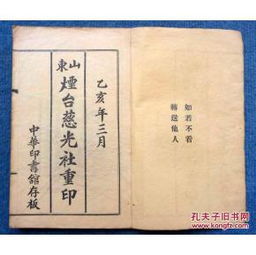 乙亥年三月
山東
煙台慈光社重印
中華印書館存板
如若不看
轉送他人
孔夫子旧书网